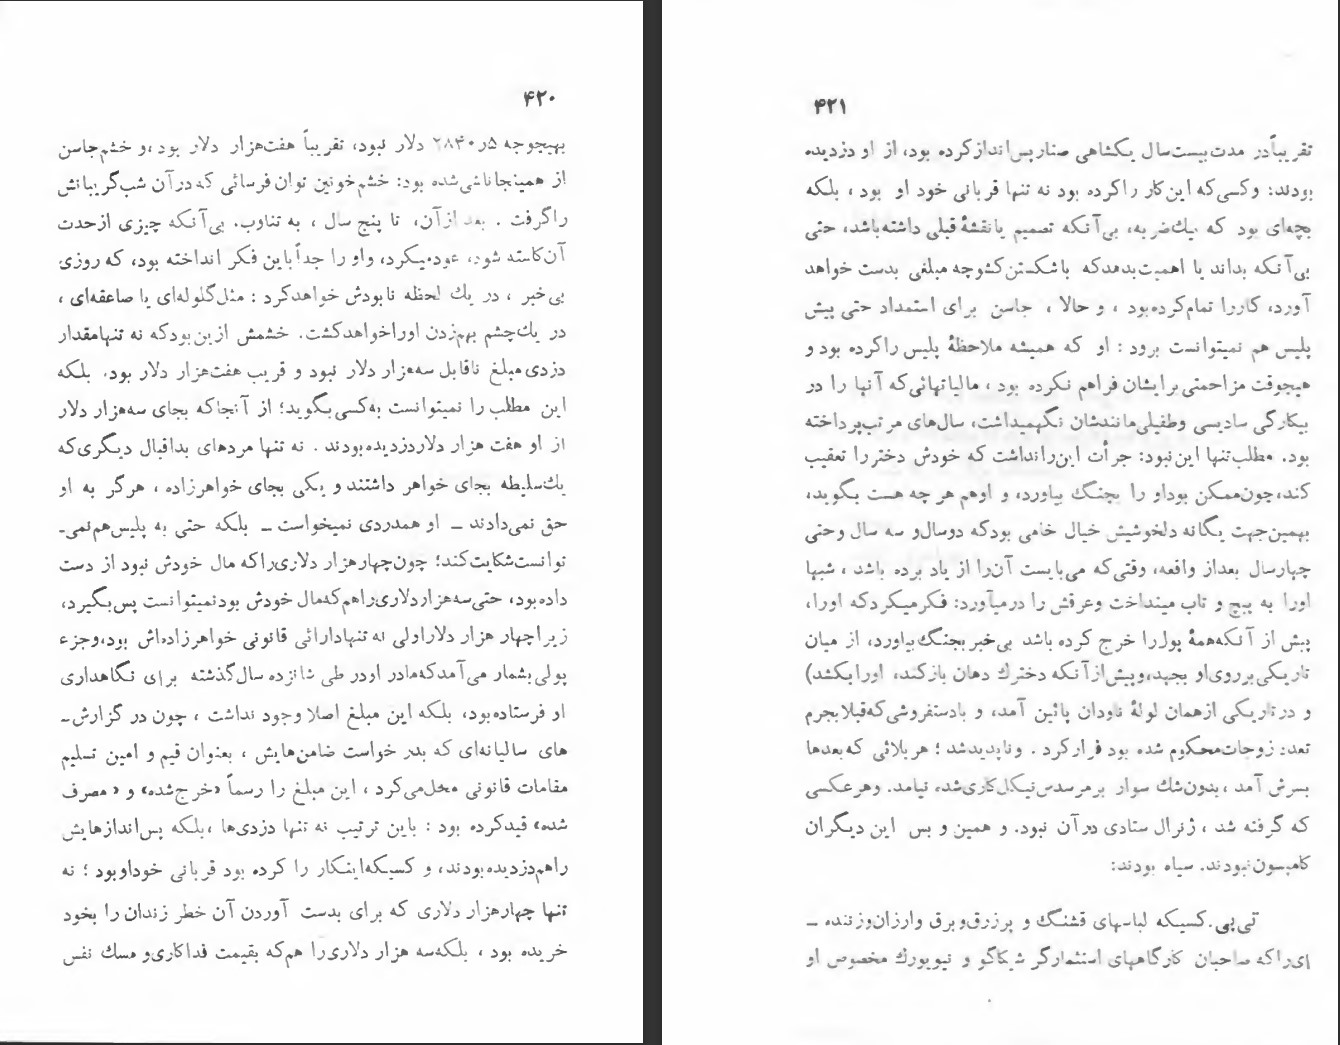 ۴۲۰
بهیچوجه در ۲۸۴۰ دلار نبود، تقریباً هفت‌هزار دلار بود ،و خشم‌جاسن
از همینجا ناشی‌شده بود: خشم‌خونین توان فرسائی که درآن شب‌گریبانش
راگرفت . بعد ازآن، تا پنج سال ، به تناوب. بی‌آنکه چیزی ازحدت
آن‌کاسته شود، عودمیکرد، واو را جداً باین فکر انداخته بود، که روزی
بی‌خبر ، در یك لحظه نابودش خواهدکرد : مثل‌گلوله‌ای یا صاعقه‌ای ،
در یك‌چشم بهم‌زدن اوراخواهدکشت. خشمش ازین‌بودکه نه تنهامقدار
دزدی مبلغ ناقابل سه‌هزار دلار نبود و قریب هفت‌هزار دلار بود، بلکه
این مطلب را نمیتوانست به‌کسی‌بگوید؛ از آنجاکه بجای سه‌هزار دلار
از او هفت هزار دلاردزدیده‌بودند . نه تنها مردهای بداقبال دیگری‌که
یك‌سلیطه بجای خواهر داشتند و یکی بجای خواهرزاده ، هرگز به او
حق نمی‌دادند ــ او همدردی نمیخواست ــ بلکه حتی به پلیس‌هم‌نمی‌ـ
توانست‌شکایت‌کند؛ چون‌چهارهزار دلاری‌راکه مال خودش نبود از دست
داده‌بود، حتی‌سه‌هزاردلاری‌راهم‌که‌مال خودش بودنمیتوانست پس‌بگیرد،
زیراچهار هزار دلاراولی نه تنهادارائی قانونی خواهرزاده‌اش بود،وجزء
پولی‌بشمار می‌آمدکه‌مادر اودر طی شانزده سال‌گذشته برای نگاهداری
او فرستاده‌بود، بلکه این مبلغ اصلا وجود نداشت ، چون در گزارش‌ـ
های سالیانه‌ای که بدر خواست ضامن‌هایش ، بعنوان قیم و امین تسلیم
مقامات قانونی محل‌می‌کرد ، این مبلغ را رسماً «خرج‌شده» و « مصرف
شده» قیدکرده بود : باین ترتیب نه تنها دزدی‌ها ،بلکه پس‌اندازهایش
راهم‌دزدیده‌بودند، و کسیکه‌اینکار را کرده بود قربانی خوداوبود ؛ نه
تنها چهارهزار دلاری که برای بدست آوردن آن خطر زندان را بخود
خریده بود ، بلکه‌سه هزار دلاری‌را هم‌که بقیمت فداکاری‌و مسك نفس
۴۲۱
تقریباًدر مدت‌بیست‌سال یکشاهی صنارپس‌اندازکرده بود، از او دزدیده
بودند: وکسی‌که این‌کار راکرده بود نه تنها قربانی خود او بود ، بلکه
بچه‌ای بود که بیك‌ضربه، بی‌آنکه تصمیم یانقشهٔ قبلی داشته‌باشد، حتی
بی‌آنکه بداند یا اهمیت‌بدهدکه باشکستن‌کشوچه مبلغی بدست خواهد
آورد، کاررا تمام‌کرده‌بود ، و حالا ، جاسن برای استمداد حتی پیش
پلیس هم نمیتوانست برود : او که همیشه ملاحظهٔ پلیس راکرده بود و
هیچوقت مزاحمتی‌برایشان فراهم نکرده بود ، مالیاتهائی‌که آنها را در
بیکارگی سادیسی وطفیلی‌مانندشان نگهمیداشت، سال‌های مرتب‌پرداخته
بود. مطلب‌تنها این‌نبود: جرأت این‌رانداشت که خودش دختررا تعقیب
کند،چون‌ممکن بوداو را بچنگ بیاورد، و اوهم هر چه هست بگوید،
بهمین‌جهت یگانه دلخوشیش خیال خامی بودکه دوسال‌و سه سال وحتی
چهارسال بعداز واقعه، وقتی‌که می‌بایست آن‌را از یاد برده باشد ، شبها
اورا به پیچ و تاب میانداخت وعرقش را درمیآورد: فکرمیکردکه اورا،
پیش از آنکه‌همهٔ پول‌را خرج کرده باشد بی‌خبر‌بچنگ‌بیاورد، از میان
تاریکی‌برروی‌او بجهد،وپیش‌ازآنکه دخترك دهان بازکند، اورابکشد)
و درتاریکی ازهمان لولهٔ ناودان پائین آمد، و بادستفروشی‌که‌قبلابجرم
تعدد زوجات‌محکوم شده بود فرارکرد . وناپدیدشد ؛ هربلائی که‌بعدها
بسرش آمد ،بدون‌شك سوار برمرسدس‌نیکل‌کاری‌شده نیامد. وهرعکسی
که گرفته شد ، ژنرال ستادی درآن نبود. و همین و بس این دیگران
کامپسون‌نبودند. سیاه بودند:
تی‌پی.کسیکه لباسهای قشنگ و پرزرق‌وبرق وارزان‌وزننده ــ
ای‌راکه صاحبان کارگاههای استثمارگر شیکاگو و نیویورك مخصوص او